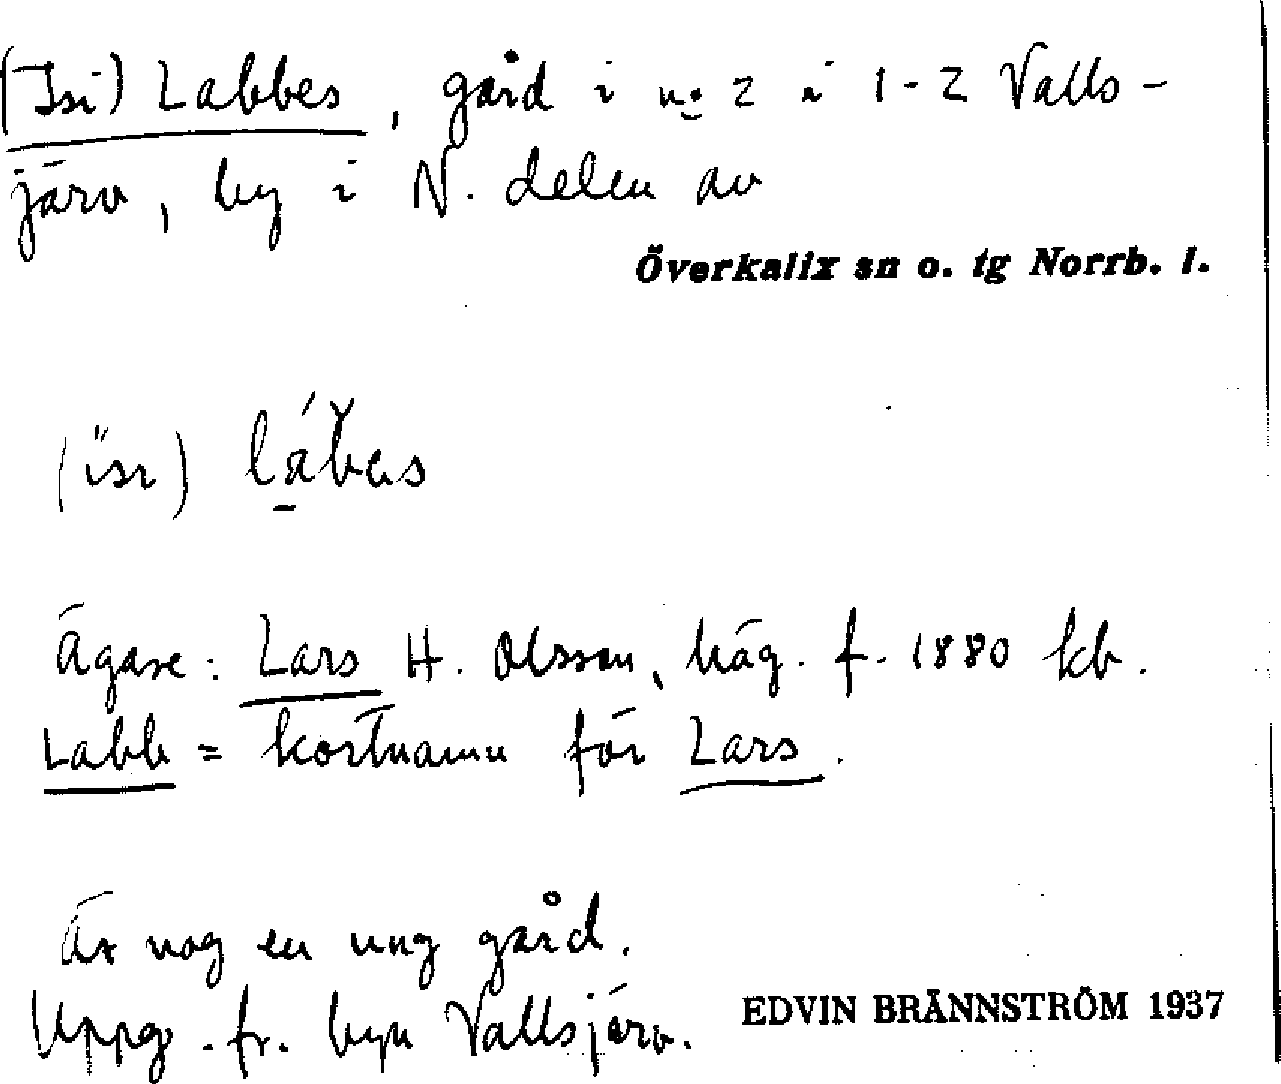 (Isi) Labbes, gård i n:o 2 i 1-2 Valls-
järv, by i N. delen av
Överkalix sn o. tg Norrb. l.
(ïsı) lábas
Ägare: Lars H. Olsson, häg. f. 1880 kb.
Labb = kortnamn för Lars.
Är nog en ung gård.
Uppg. fr. byn Vallsjärv.
EDVIN BRÄNNSTRÖM 1937